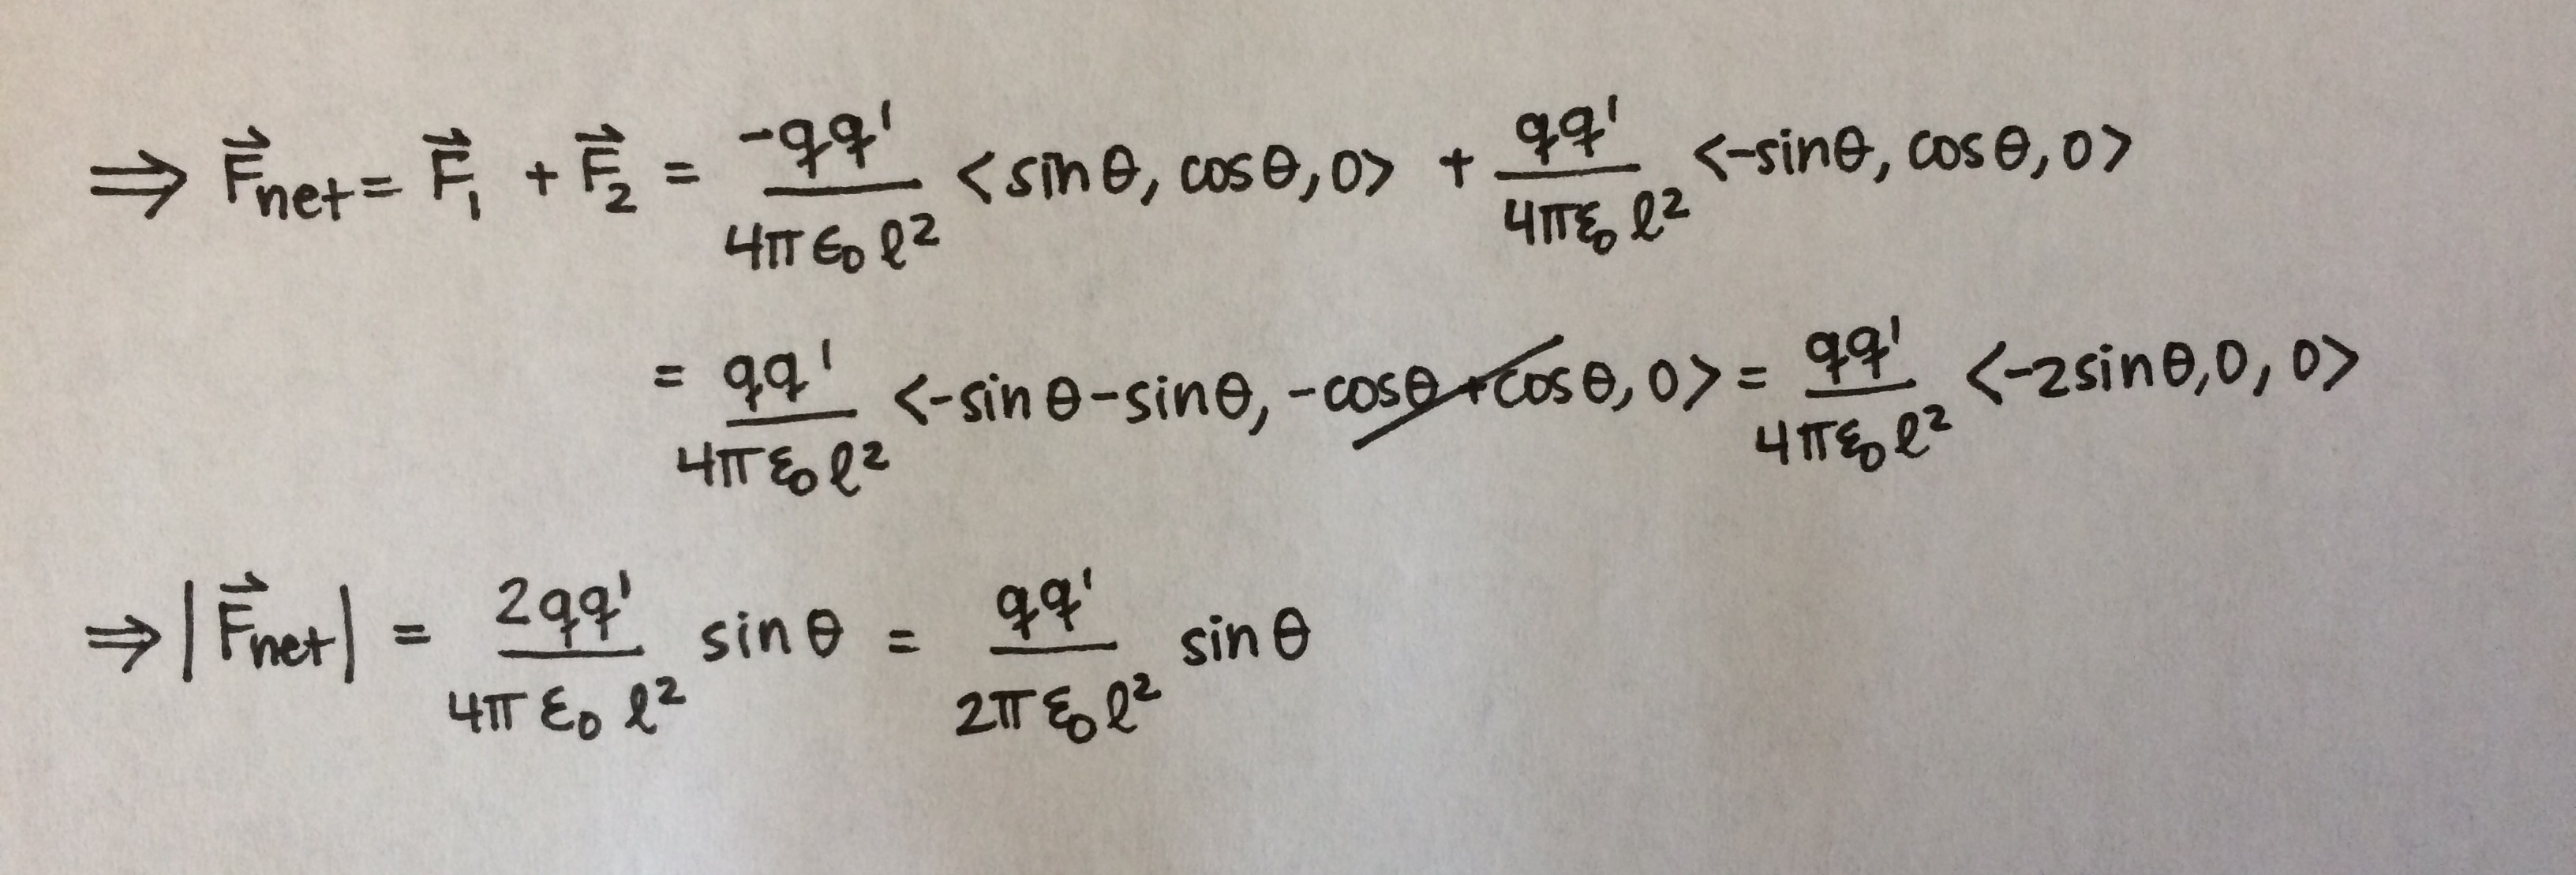 ⇒ F⃗net = F⃗₁ + F⃗₂ = -qq'/4πε₀ℓ² <sinθ, cosθ, 0> + qq'/4πε₀ℓ² <-sinθ, cosθ, 0>
= qq'/4πε₀ℓ² <-sinθ-sinθ, -cosθ+cosθ, 0> = qq'/4πε₀ℓ² <-2sinθ, 0, 0>
⇒ |F⃗net| = 2qq'/4πε₀ℓ² sinθ = qq'/2πε₀ℓ² sinθ